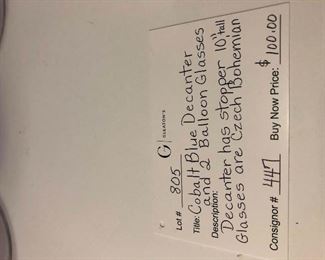 G | GLEATON'S
Lot # 805
Title: Cobalt Blue Decanter
and 2 Balloon Glasses
Description:
Decanter has stopper 10" tall
Glasses are Czech Bohemian
Consignor # 447 Buy Now Price: $100.00